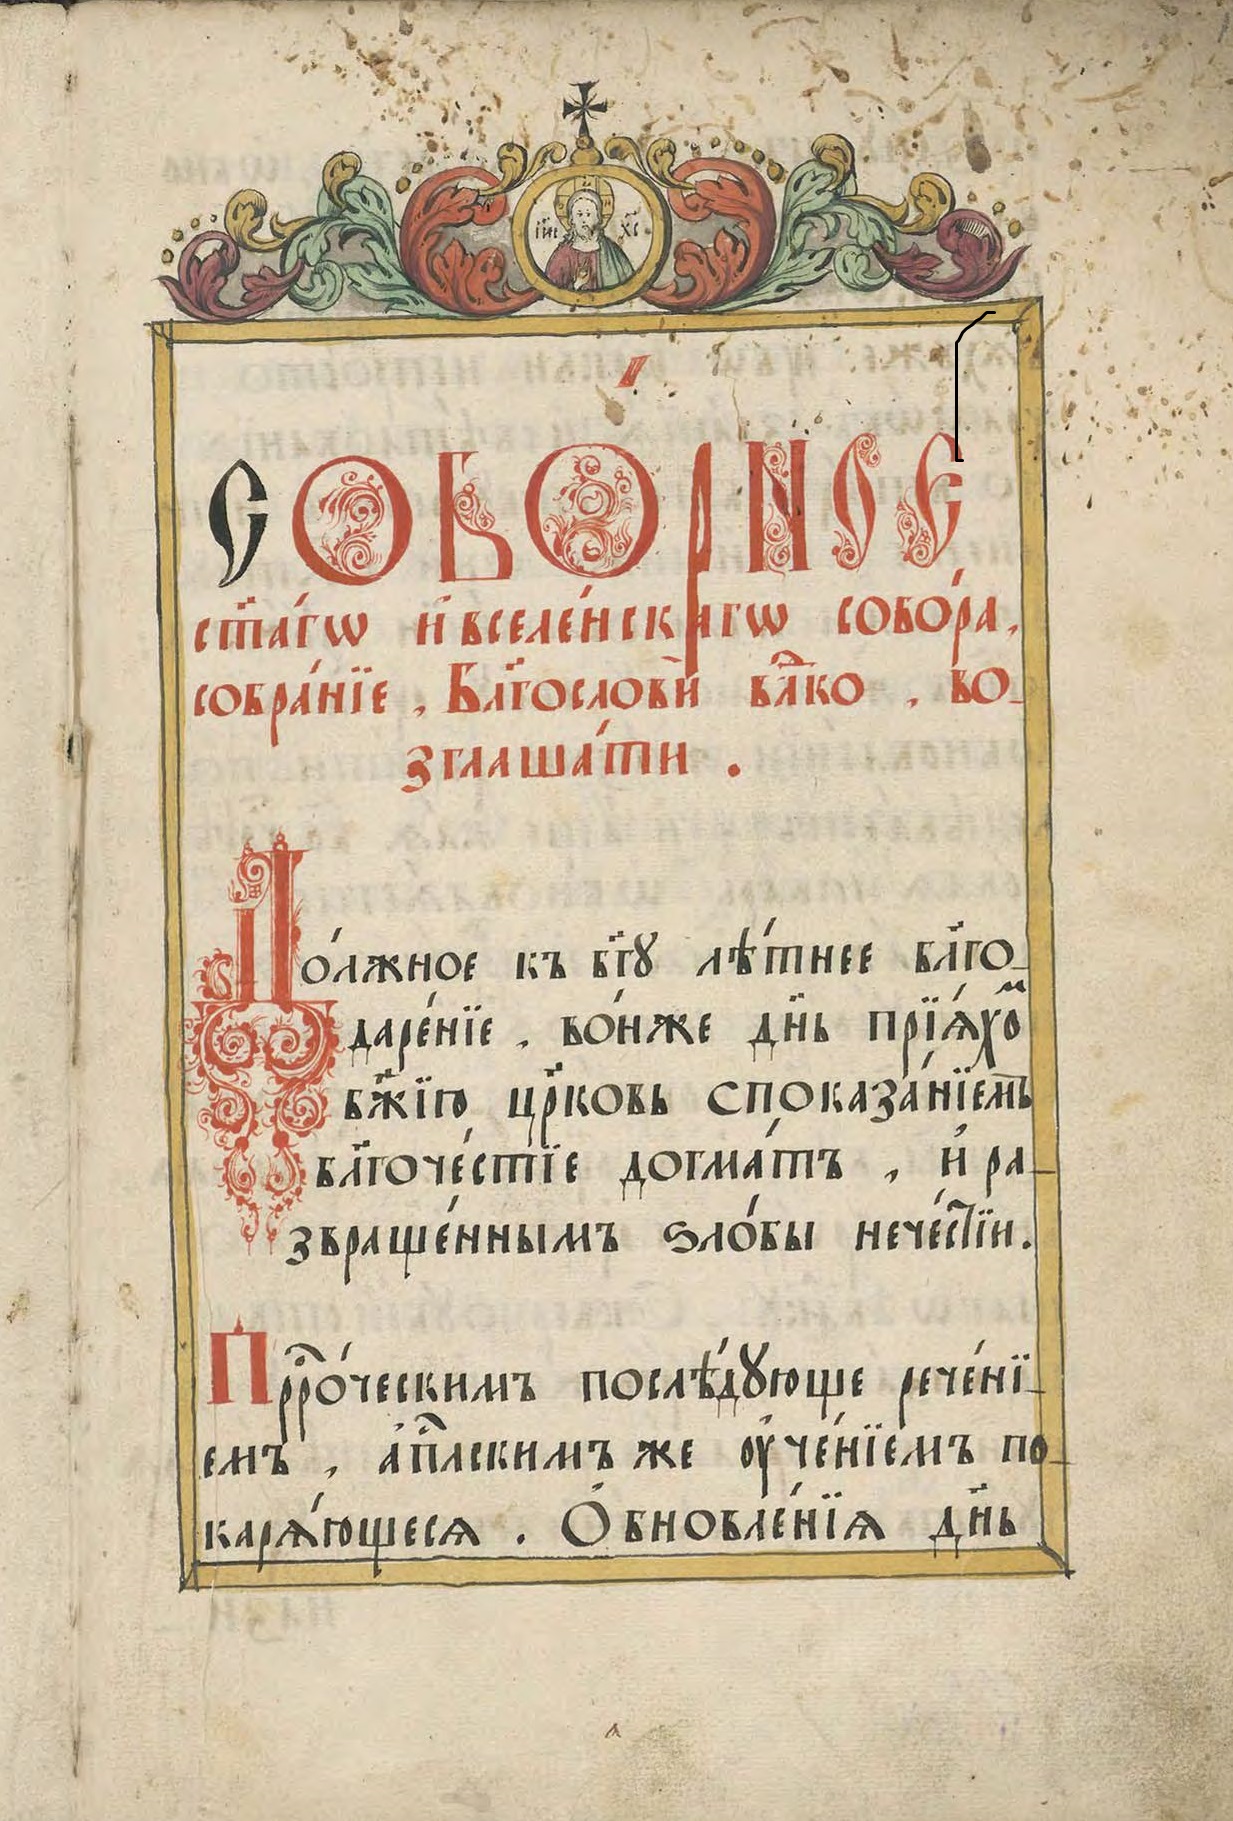 І҃И҃С Х҃С
СОБО́РNОЕ
ст҃а́гѡ и҆ вселе́нскагѡ собо́ра,
собра́нїе, Бл҃гослови́ вл҃ко, во_
зглаша́ти.
До́лжное къ бг҃ꙋ лѣ́тнее бл҃го_
даре́нїе, во́нже дн҃ь прїѧ́хоⷨ
бж҃їю цр҃ковь споказа́нїемъ
бл҃гоче́стїе догма́тъ, и҆ ра_
звраще́ннымъ ѕло́бы нече́стїи.
Прⷪ҇ро́ческимъ послѣ́дꙋюще рече́нї_
емъ, а҆пⷭ҇лскимъ же ᲂу҆че́нїемъ по_
карѧ́ющесѧ. Ѻ҆бновле́нїѧ дн҃ь
а